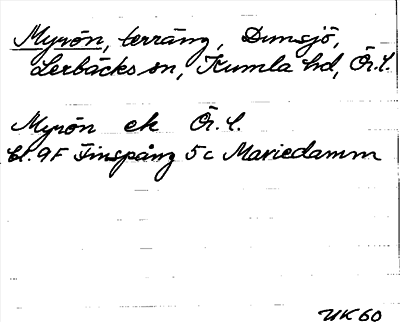 Myrön, terräng, Dunsjö,
Lerbäcks sn, Kumla hd, Ör. l.
Myrön ek Ör. l.
bl. 9F Finspång 5c Mariedamm
UK60